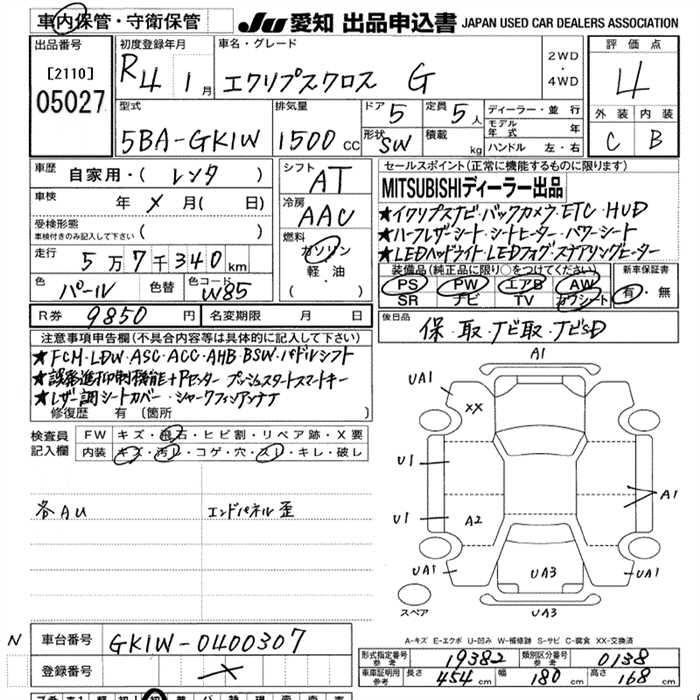 車内保管・守衛保管
JU 愛知 出品申込書 JAPAN USED CAR DEALERS ASSOCIATION
出品番号 [2110] 05027
初度登録年月 R4 1月
車名・グレード エクリプスクロス G
2WD・4WD
評価点 4
外装 C 内装 B
型式 5BA-GK1W
排気量 1500cc
ドア 5 形状 SW
定員 5人 積載 kg
ディーラー・並行
モデル年式 年
ハンドル 左・右
車歴 自家用・( レンタ )
車検 年 メ 月( 日)
受検形態 車検付きのみ記入して下さい ( )
走行 5万7千340km
色 パール 色替 色コード W85
シフト AT
冷房 AAC
燃料 ガソリン 軽油 ( )
R券 9850円 名変期限 月 日
セールスポイント(正常に機能するものに限ります)
MITSUBISHIディーラー出品
★イクリプスナビ・バックカメラ・ETC・HUD
★ハーフレザーシート・シートヒーター・パワーシート
★LEDヘッドライト・LEDフォグ・ステアリングヒーター
装備品(純正品に限り○をつけてください)
PS PW エアB AW
SR ナビ TV カワシート
新車保証書 有・無
後日品 保・取・ナビ取・ナビSD
注意事項申告欄(不具合内容等は具体的に記入して下さい)
★FCM・LDW・ASC・ACC・AHB・BSW・パドルシフト
★誤発進抑制機能+Pセンサー プッシュスタートスマートキー
★レザー調シートカバー・シャークフィンアンテナ
修復歴 有 (箇所 )
検査員記入欄
FW キズ・飛石・ヒビ割・リペア跡・X要
内装 キズ・汚れ・コゲ・穴・スレ・キレ・破レ
各AU
エンドパネル歪
A1
UA1
XX
UA1
U1
U1
A2
A1
UA1
UA3
UA1
UA3
スペア
A-キズ E-エクボ U-凹み W-補修跡 S-サビ C-腐食 XX-交換済
N 車台番号 GK1W-0400307
登録番号 メ
形式指定番号 参考 19382 類別区分番号 参考 0138
車庫証明用 参考 長さ 454cm 幅 180cm 高さ 168cm